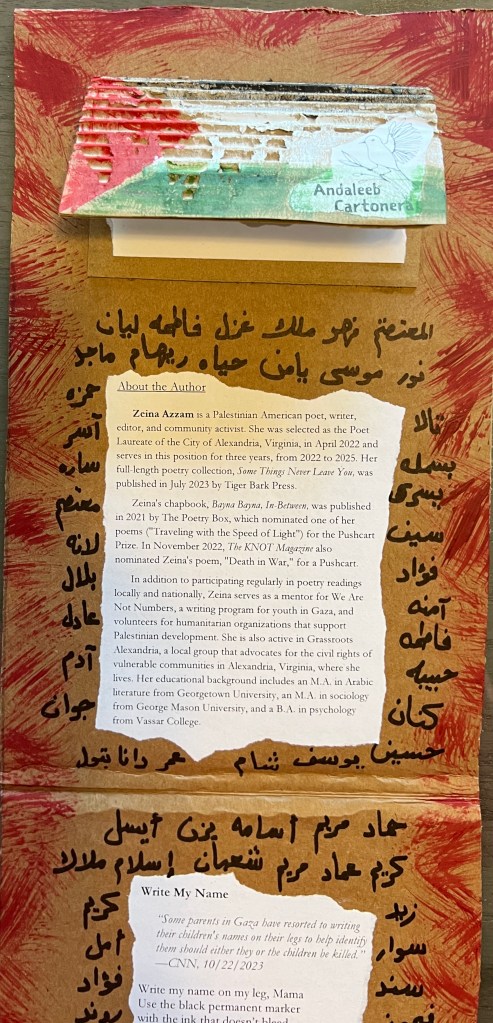 Andaleeb
Cartonera
المعتصم فهو ملك غزل فاطمه ليان
نور موسى يامن حياه ريهام ماجد
حمزه
آسر
ساره
معتصم
لانه
بلال
عادل
آدم
جوان
About the Author
Zeina Azzam is a Palestinian American poet, writer,
editor, and community activist. She was selected as the Poet
Laureate of the City of Alexandria, Virginia, in April 2022 and
serves in this position for three years, from 2022 to 2025. Her
full-length poetry collection, Some Things Never Leave You, was
published in July 2023 by Tiger Bark Press.
Zeina's chapbook, Bayna Bayna, In-Between, was published
in 2021 by The Poetry Box, which nominated one of her
poems ("Traveling with the Speed of Light") for the Pushcart
Prize. In November 2022, The KNOT Magazine also
nominated Zeina's poem, "Death in War," for a Pushcart.
In addition to participating regularly in poetry readings
locally and nationally, Zeina serves as a mentor for We Are
Not Numbers, a writing program for youth in Gaza, and
volunteers for humanitarian organizations that support
Palestinian development. She is also active in Grassroots
Alexandria, a local group that advocates for the civil rights of
vulnerable communities in Alexandria, Virginia, where she
lives. Her educational background includes an M.A. in Arabic
literature from Georgetown University, an M.A. in sociology
from George Mason University, and a B.A. in psychology
from Vassar College.
تالا
بسمله
يسرى
سيف
فؤاد
آمنه
فاطمه
حبيبه
كنان
حسين يوسف شام عمر دانا بتول
حماد مريم أسامه يزن أيسل
كريم عماد مريم شعبان إسلام ملالا
كريم
أمل
فؤاد
Write My Name
"Some parents in Gaza have resorted to writing
their children's names on their legs to help identify
them should either they or the children be killed."
—CNN, 10/22/2023
Write my name on my leg, Mama
Use the black permanent marker
with the ink that doesn't bleed
زيد
سوار
سند